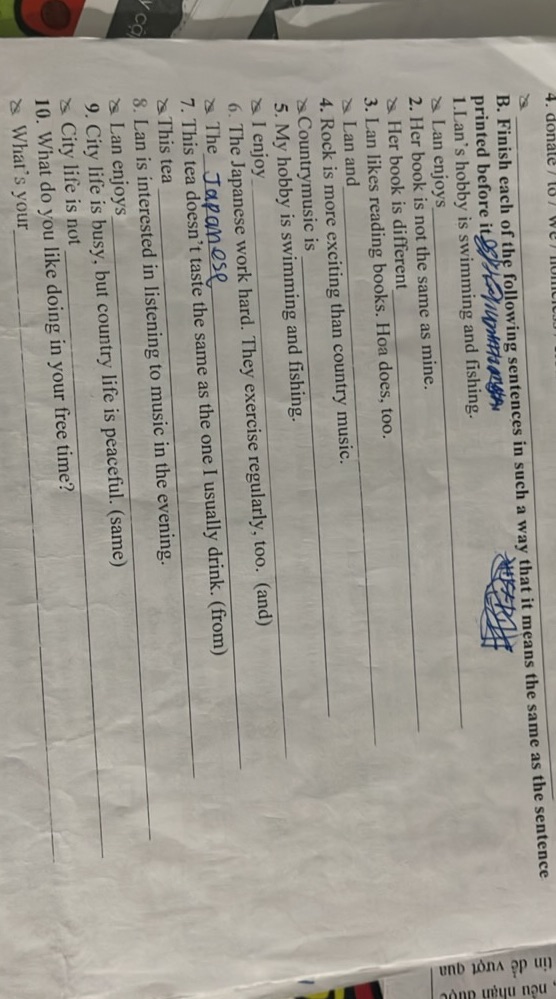 4. donate / to / we
B. Finish each of the following sentences in such a way that it means the same as the sentence
printed before it
1.Lan's hobby is swimming and fishing.
Lan enjoys
2. Her book is not the same as mine.
Her book is different
3. Lan likes reading books. Hoa does, too.
Lan and
4. Rock is more exciting than country music.
Countrymusic is
5. My hobby is swimming and fishing.
I enjoy
6. The Japanese work hard. They exercise regularly, too. (and)
The Japanese
7. This tea doesn't taste the same as the one I usually drink. (from)
This tea
8. Lan is interested in listening to music in the evening.
Lan enjoys
9. City life is busy, but country life is peaceful. (same)
City life is not
10. What do you like doing in your free time?
What's your
nếu nhận được
tin để vượt qua